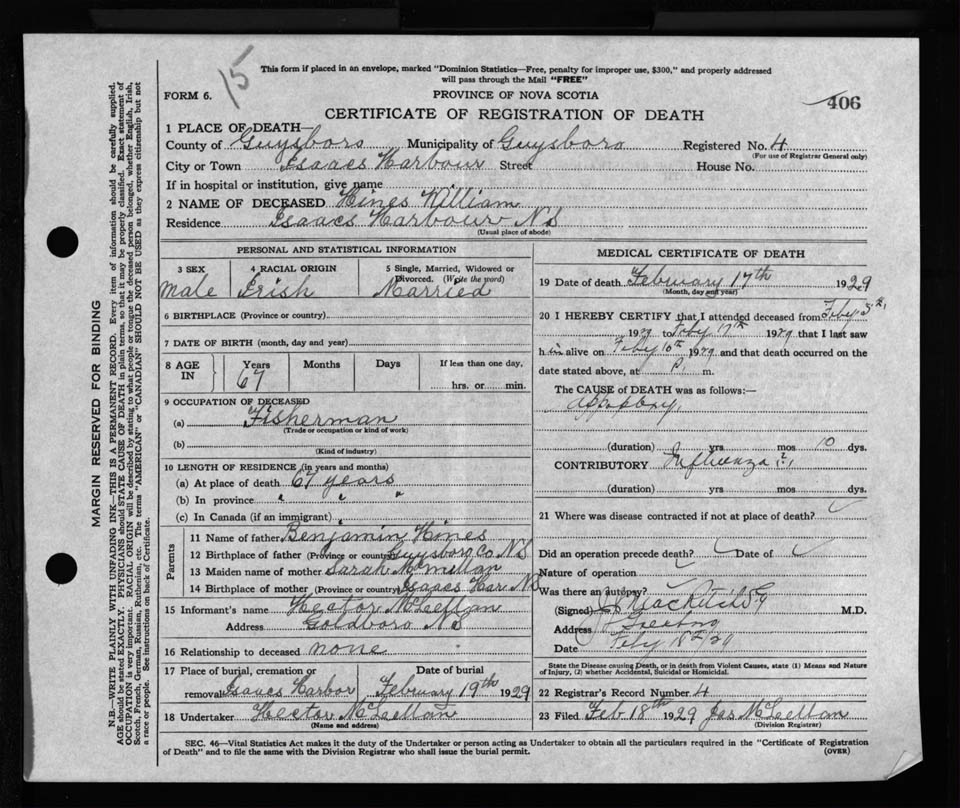 15
This form if placed in an envelope, marked "Dominion Statistics—Free, penalty for improper use, $300," and properly addressed
will pass through the Mail "FREE"
FORM 6.
PROVINCE OF NOVA SCOTIA
406
CERTIFICATE OF REGISTRATION OF DEATH
1 PLACE OF DEATH—
County of Guysboro Municipality of Guysboro Registered No. 4
(For use of Registrar General only)
City or Town Isaacs Harbour Street House No.
If in hospital or institution, give name
2 NAME OF DECEASED Hines William
Residence Isaacs Harbour N.S
(Usual place of abode)
PERSONAL AND STATISTICAL INFORMATION
3 SEX 4 RACIAL ORIGIN 5 Single, Married, Widowed or Divorced. (Write the word)
Male Irish Married
6 BIRTHPLACE (Province or country)
7 DATE OF BIRTH (month, day and year)
8 AGE IN Years Months Days If less than one day,
67 hrs. or min.
9 OCCUPATION OF DECEASED
(a) Fisherman
(Trade or occupation or kind of work)
(b)
(Kind of industry)
10 LENGTH OF RESIDENCE (in years and months)
(a) At place of death 67 years
(b) In province " " "
(c) In Canada (if an immigrant)
Parents
11 Name of father Benjamin Hines
12 Birthplace of father (Province or country) Guysboro Co. N.S
13 Maiden name of mother Sarah McMillan
14 Birthplace of mother (Province or country) Isaacs Har N.S
15 Informant's name Hector McLellan
Address Goldboro N.S
16 Relationship to deceased none
17 Place of burial, cremation or removal Isaacs Harbor Date of burial February 19th 1929
18 Undertaker Hector McLellan
(Name and address)
MEDICAL CERTIFICATE OF DEATH
19 Date of death February 17th 1929
(Month, day and year)
20 I HEREBY CERTIFY that I attended deceased from Feby 5th
1929 to Feby 17th 1929 that I last saw
h im alive on Feby 16th 1929 and that death occurred on the
date stated above, at P. m.
The CAUSE of DEATH was as follows:—
Apoplexy
(duration) yrs mos 10 dys.
CONTRIBUTORY Influenza
(duration) yrs mos dys.
21 Where was disease contracted if not at place of death?
Did an operation precede death? Date of
Nature of operation
Was there an autopsy?
(Signed) M.D.
Address
Date Feby 18th/29
State the Disease causing Death, or in death from Violent Causes, state (1) Means and Nature
of Injury, (2) whether Accidental, Suicidal or Homicidal.
22 Registrar's Record Number 4
23 Filed Feb 18th 1929 Jas McLellan
(Division Registrar)
SEC. 46—Vital Statistics Act makes it the duty of the Undertaker or person acting as Undertaker to obtain all the particulars required in the "Certificate of Registration
of Death" and to file the same with the Division Registrar who shall issue the burial permit.
(OVER)
MARGIN RESERVED FOR BINDING
N.B.—WRITE PLAINLY WITH UNFADING INK—THIS IS A PERMANENT RECORD. Every item of information should be carefully supplied.
AGE should be stated EXACTLY. PHYSICIANS should STATE CAUSE OF DEATH in plain terms, so that it may be properly classified. Exact statement of
OCCUPATION is very important. RACIAL ORIGIN will be described by stating to what people or tongue the deceased person belonged, whether English, Irish,
Scotch, French, German, Russian, Ruthenian, etc. The terms "AMERICAN" or "CANADIAN" SHOULD NOT BE USED as they express citizenship but not
a race or people. See instructions on back of Certificate.